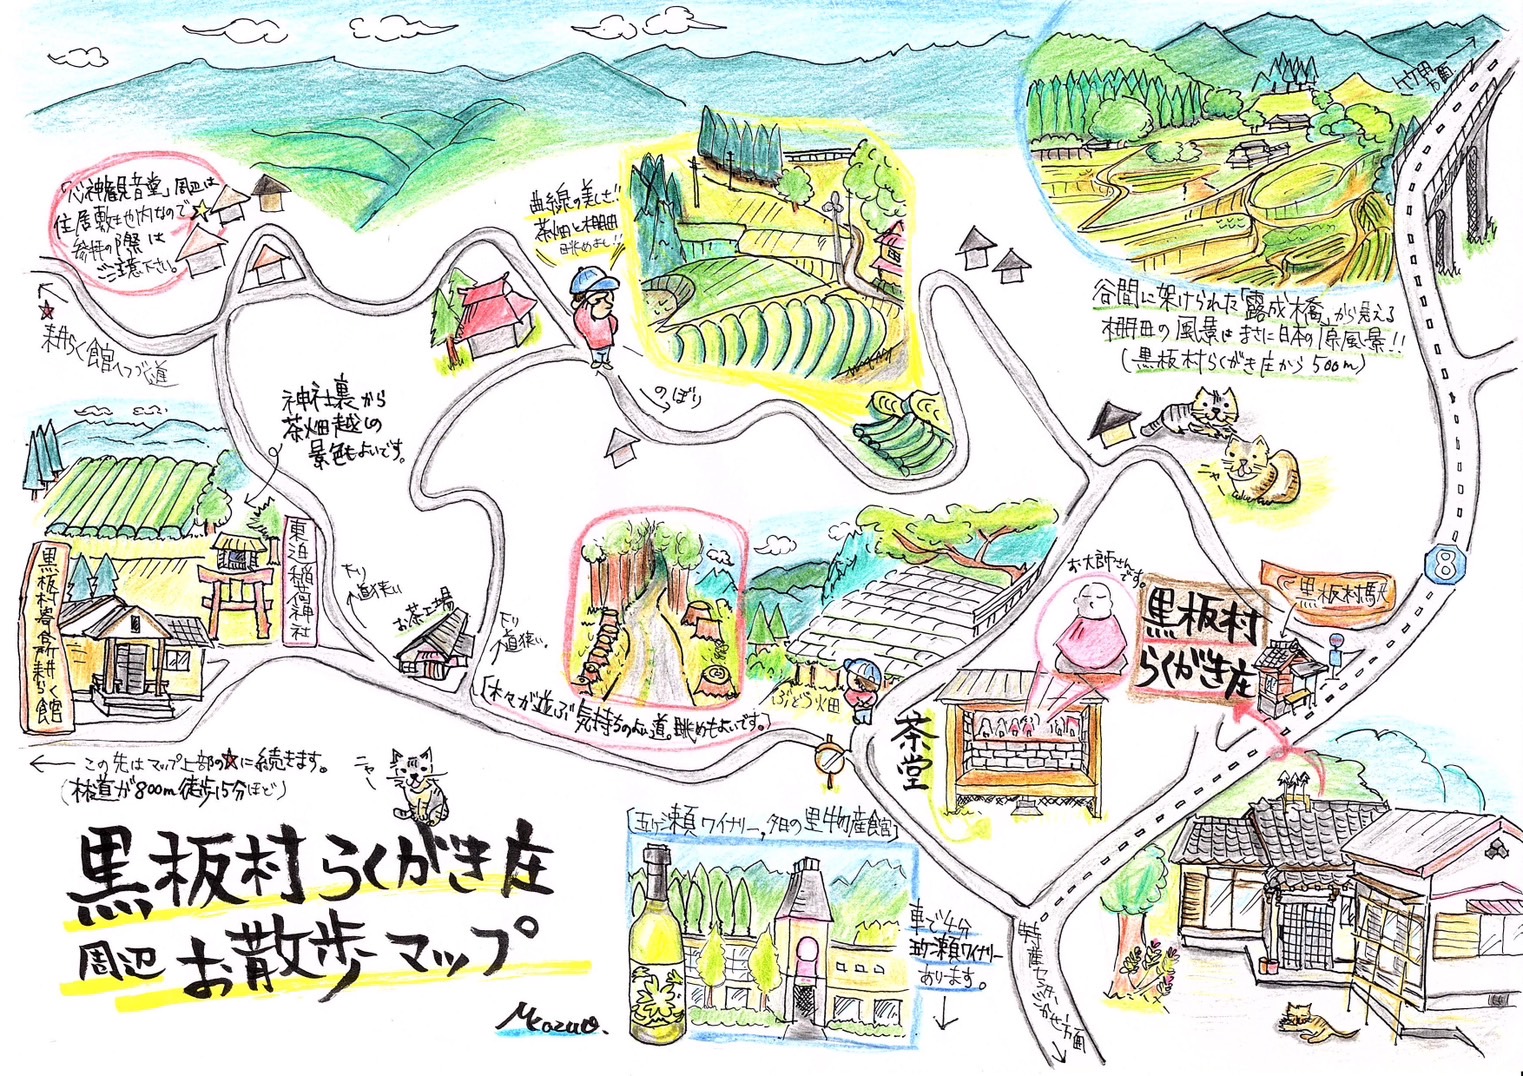 竹田方面
「心神観音堂」周辺は
住居敷地内なので
参拝の際は
ご注意下さい。
★
耕らく館へつづく道
曲線の美しさ!!
茶畑と棚田
眺めよし!!
のぼり
谷間に架けられた「露成橋」から見える
棚田の風景はまさに日本の原風景!!
(黒板村らくがき庄から500m)
神社裏から
茶畑越しの
景色もよいです。
ニャー
8
黒板村寄合所耕らく館
東迫稲荷神社
下り
道狭い
お茶工場
下り
道狭い。
[木々が並ぶ気持ちのよい道。眺めもよいです。]
ぶどう畑
お大師さん
です。
黒板村
らくがき庄
黒板村駅
茶堂
← この先はマップ上部の★に続きます。
(林道が800m徒歩15分ほど)
ニャー
黒板村らくがき庄
周辺お散歩マップ
[五ヶ瀬ワイナリー,夕日の里物産館]
車で4分
五ヶ瀬ワイナリー
あります。
特産センターごかせ方面